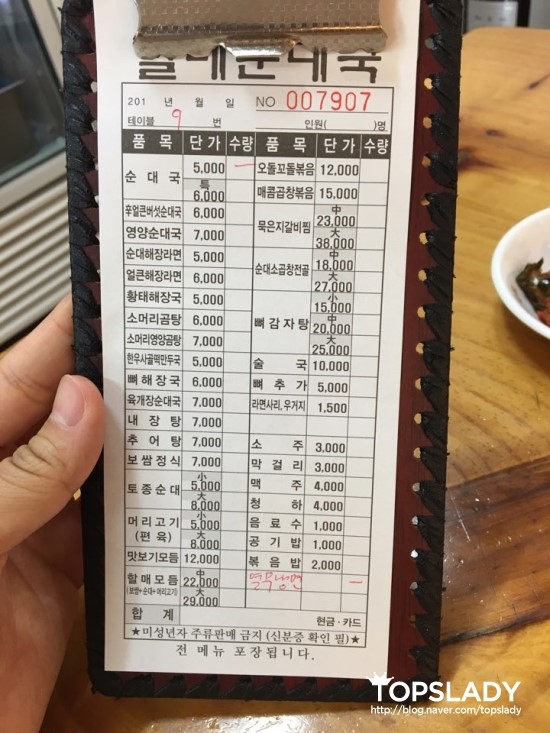 할매순대국
201 년 월 일 NO 007907
테이블 9 번 인원( )명
품 목 단 가 수량 품 목 단 가 수량
순 대 국 5,000 一
특 6,000
후얼큰버섯순대국 6,000
영양순대국 7,000
순대해장라면 5,000
얼큰해장라면 6,000
황태해장국 5,000
소머리곰탕 6,000
소머리영양곰탕 7,000
한우사골떡만두국 5,000
뼈해장국 6,000
육개장순대국 7,000
내 장 탕 7,000
추 어 탕 7,000
보쌈정식 7,000
토종순대 小 5,000
大 8,000
머리고기 (편 육) 小 5,000
大 8,000
맛보기모듬 12,000
할매모듬 (보쌈+순대+머리고기) 中 22,000
大 29,000
오돌꼬돌볶음 12,000
매콤곱창볶음 15,000
묵은지갈비찜 中 23,000
大 38,000
순대소곱창전골 中 18,000
大 27,000
뼈감자탕 小 15,000
中 20,000
大 25,000
술 국 10,000
뼈 추 가 5,000
라면사리,우거지 1,500
소 주 3,000
막 걸 리 3,000
맥 주 4,000
청 하 4,000
음 료 수 1,000
공 기 밥 1,000
볶 음 밥 2,000
열무냉면 一
합 계 현금 · 카드
★미성년자 주류판매 금지 (신분증 확인 필)★
전 메뉴 포장됩니다.
TOPSLADY
http://blog.naver.com/topslady